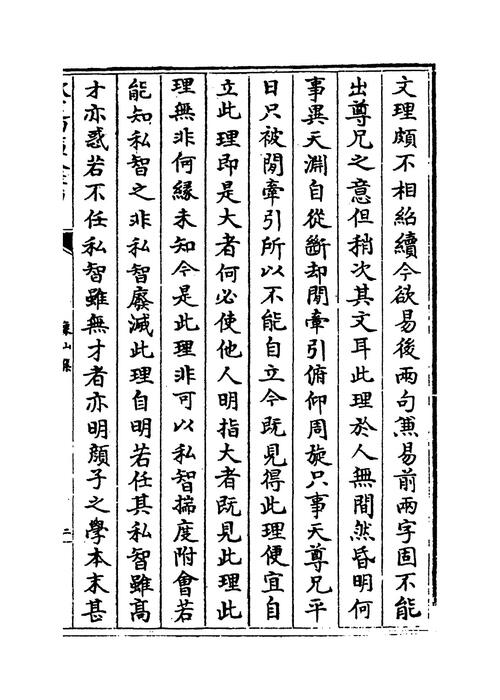 文理頗不相紹續今欲易後兩句兼易前兩字固不能
出尊兄之意但稍次其文耳此理於人無間然昏明何
事異天淵自從斷却閒牽引俯仰周旋只事天尊兄平
日只被閒牽引所以不能自立今既見得此理便宜自
立此理即是大者何必使他人明指大者既見此理此
理無非何緣未知今是此理非可以私智揣度附會若
能知私智之非私智廢滅此理自明若任其私智雖高
才亦惑若不任私智雖無才者亦明顔子之學本末甚
象山集